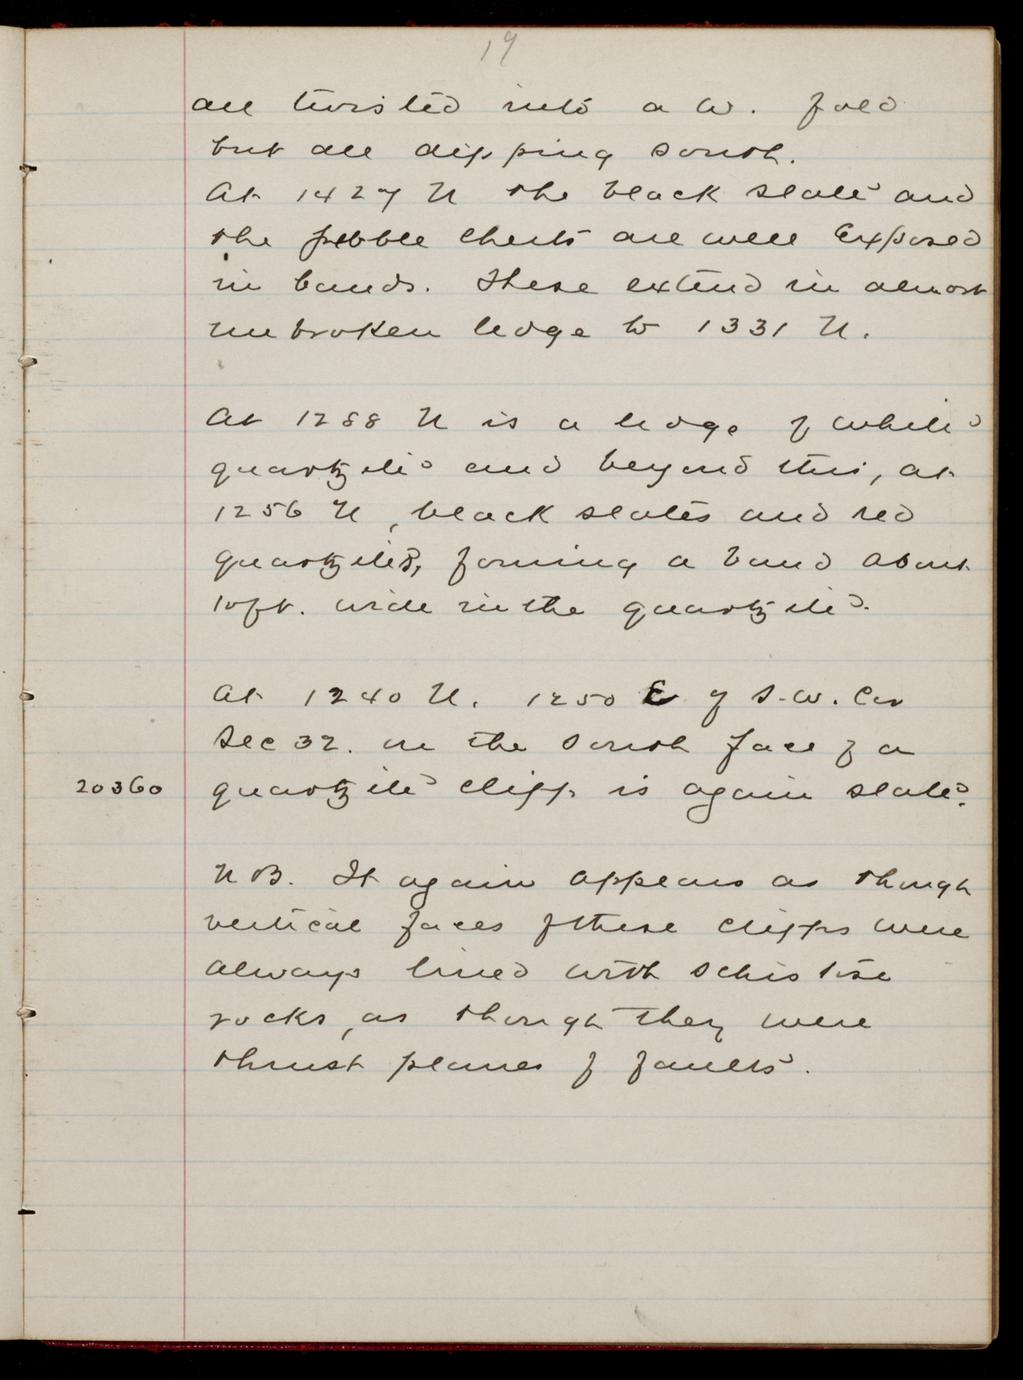 19
all twisted into a W. fold
but all dipping south.
At 1427 N the black slate and
the pebble cherts are well exposed
in bands. These extend in almost
unbroken ledge to 1331 N.
At 1288 N is a ledge of white
quartzite and beyond this, at
1256 N, black slates and red
quartzites, forming a band about
10ft. wide in the quartzite.
At 1240 N. 1250 E of S.W. Cor
Sec 32. on the south face of a
20360 quartzite cliff is again slate.
NB. It again appears as though
vertical faces of these cliffs were
always lined with schistose
rocks, as though they were
thrust planes of faults.